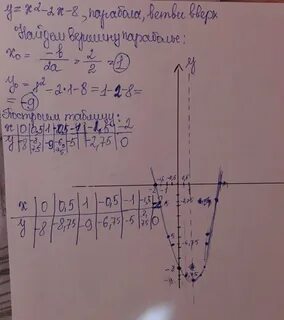 y = x² - 2x - 8, парабола, ветви вверх
Найдем вершину параболы:
x₀ = -b/2a = 2/2 = 1
y = 1² - 2·1 - 8 = 1 - 2 - 8 =
= -9
Построим таблицу:
x 0 0,5 1 -0,5 -1 -1,5 -2
y -8 -8,75 -9 -6,75 -5 -2,75 0
x 0 0,5 1 -0,5 -1 -1,5
y -8 -8,75 -9 -6,75 -5 0
y
-8
-9